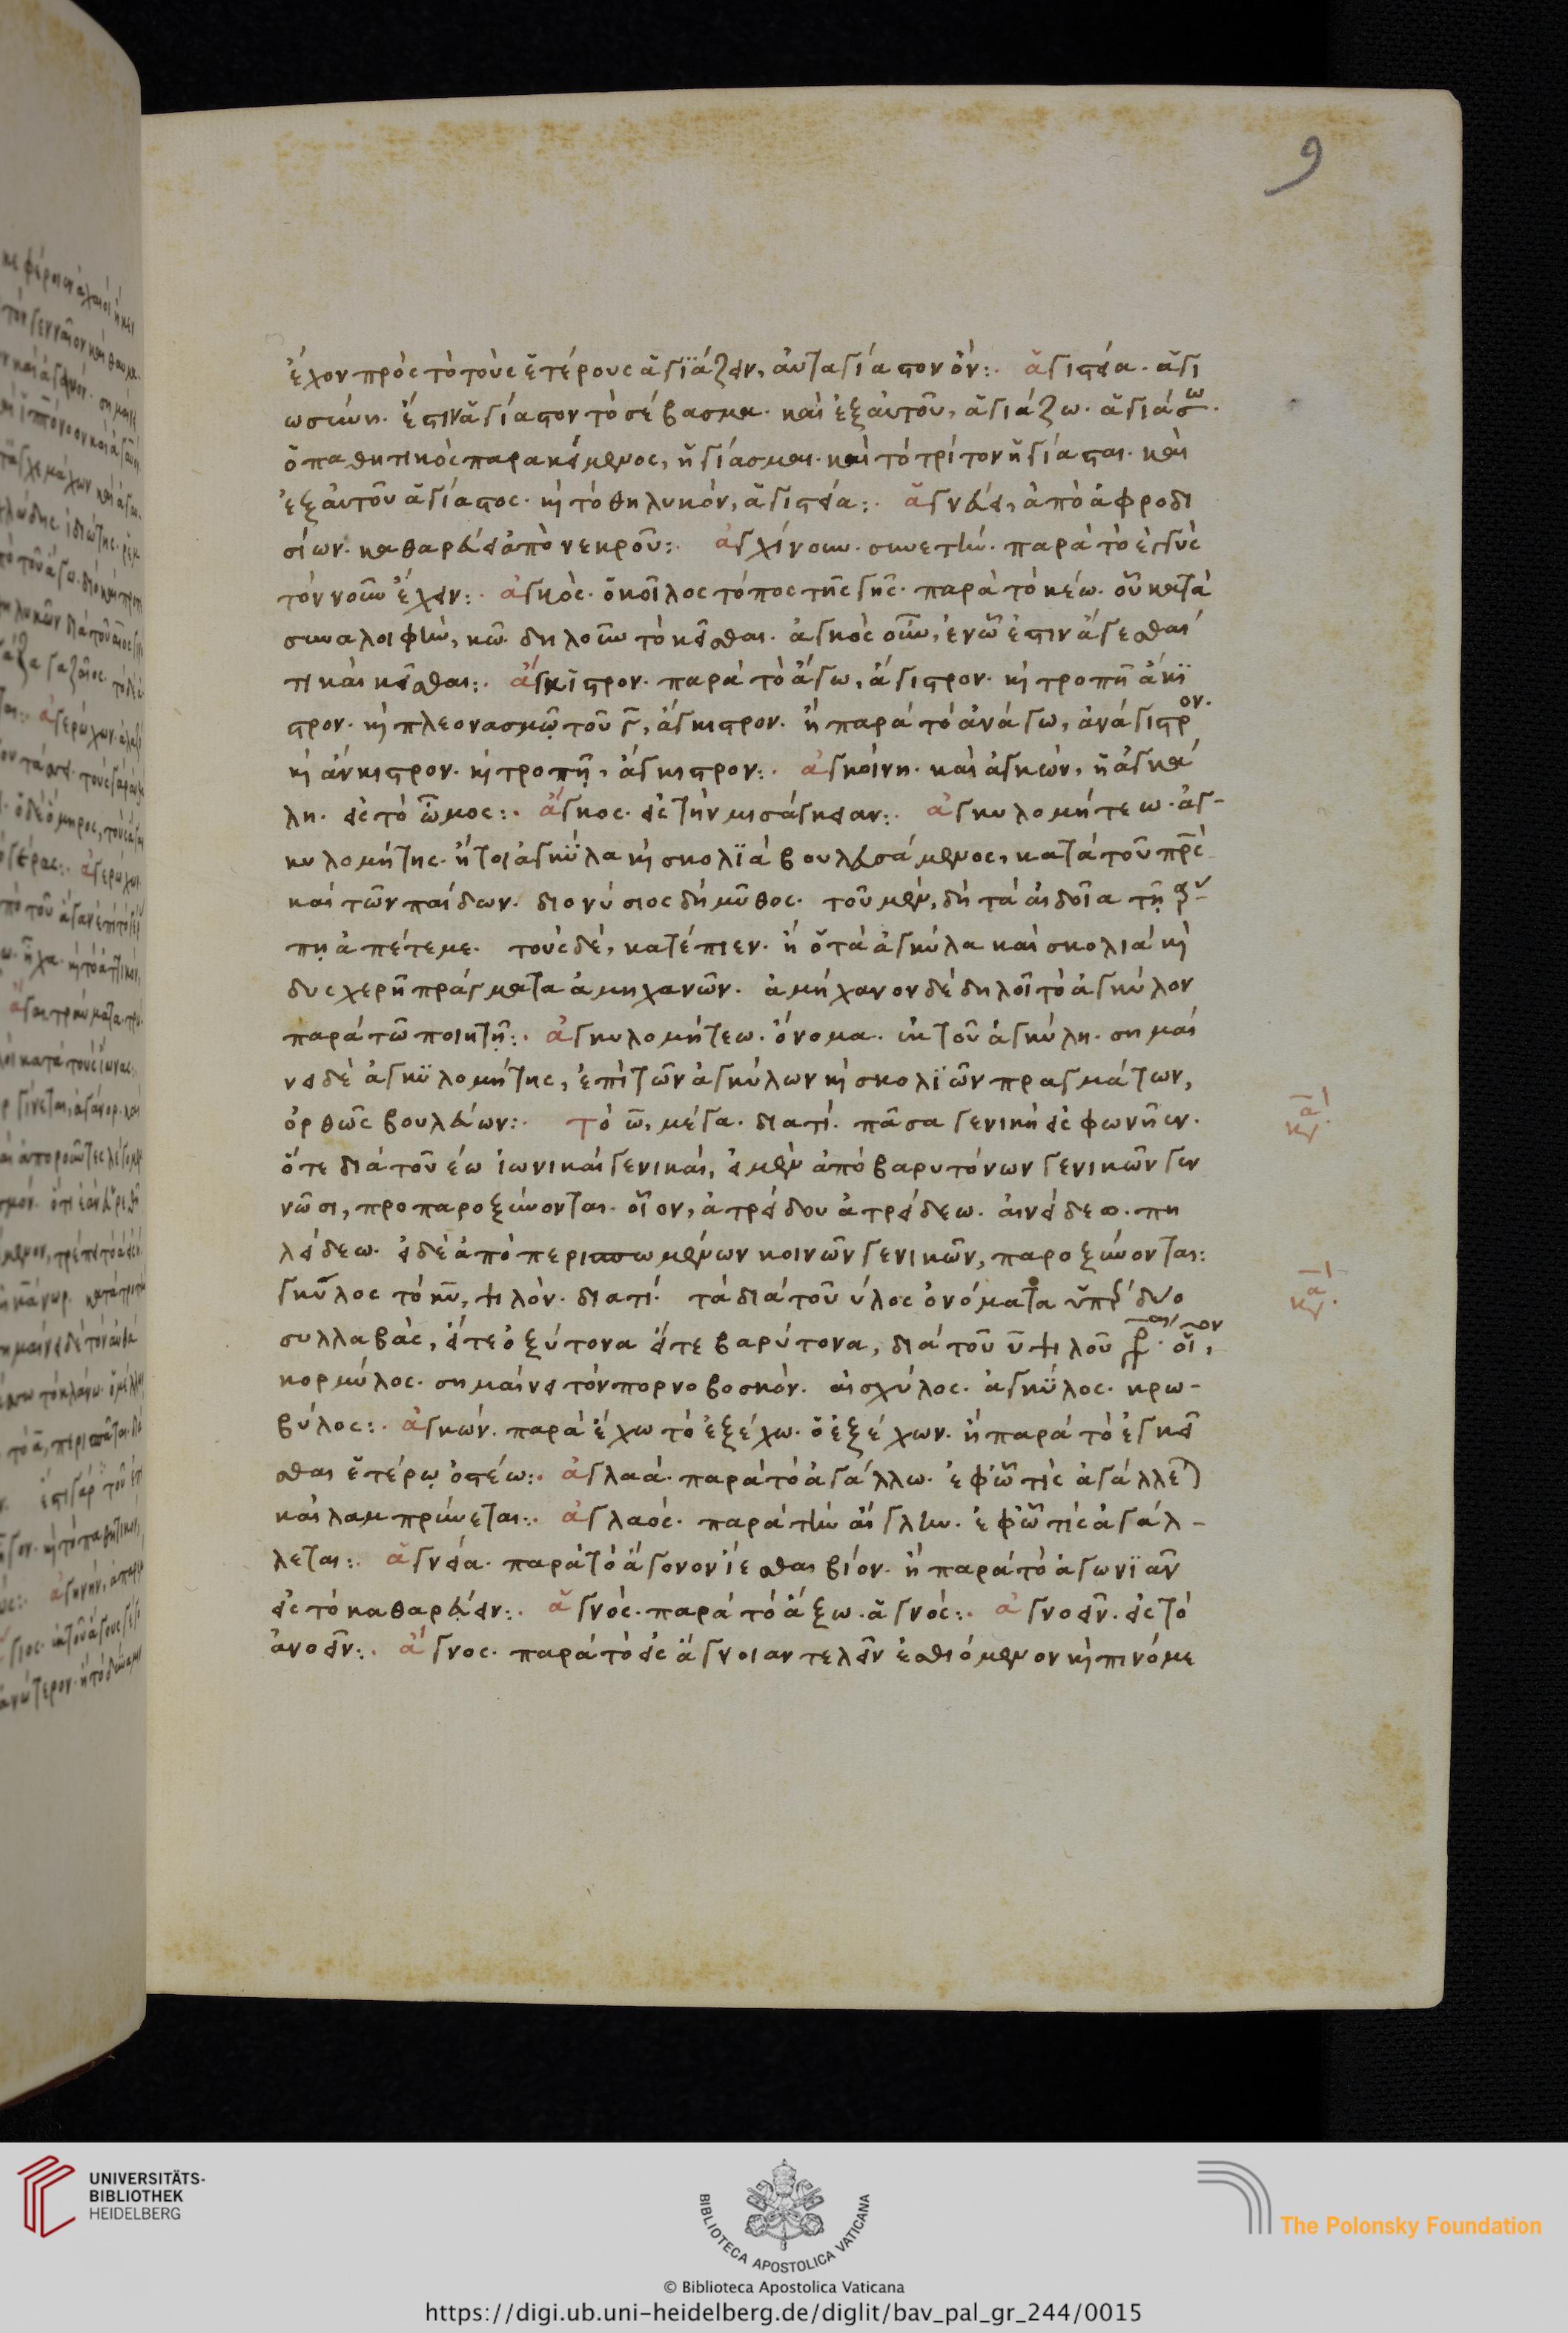 9
ἔχον πρὸς τὸ τοὺς ἑτέρους ἁγϊάζειν, αὐταγίαστον ὄν:· ἁγιστεία· ἁγι
ωσύνη· ἔστιν ἁγίαστον τὸ σέβασμα· καὶ ἐξ αὐτοῦ, ἁγιάζω· ἁγιάσω·
ὁ παθητικὸς παρακείμενος, ἡγίασμαι· καὶ τὸ τρίτον ἡγίασται· καὶ
ἐξ αὐτοῦ ἁγίαστος· κὶ τὸ θηλυκόν, ἁγιστεία:· ἁγνεύει, ἀπὸ ἀφροδι
σίων· καθαρεύει ἀπὸ νεκροῦ:· ἀγχίνουν· συνετὴν· παρὰ τὸ ἐγγὺς
τὸν νοῦν ἔχειν:· ἀγκὸς· ὁ κοῖλος τόπος τῆς γῆς· παρὰ τὸ κέω· οὗ κατὰ
συναλοιφὴν, κῶ· δηλοῦν τὸ κεῖσθαι· ἀγκὸς οὖν, ἐν ᾧ ἐστιν ἄγεσθαί
τι καὶ κεῖσθαι:· ἄγκϊστρον· παρὰ τὸ ἄγω, ἄγιστρον· κὶ τροπῇ ἄκϊ
στρον· κὶ πλεονασμῷ τοῦ γ, ἄγκιστρον· ἢ παρὰ τὸ ἀνάγω, ἀνάγιστρον·
κὶ ἄνκιστρον· κὶ τροπῇ, ἄγκιστρον:· ἀγκοίνη· καὶ ἀγκών, ἢ ἀγκά
λη· εἰς τὸ ὦμος:· ἄγκος· εἰς τὴν μισάγκειαν:· ἀγκυλομήτεω· ἀγ-
κυλομήτης· ἤτοι ἀγκΰλα κὶ σκολϊὰ βουλευσάμενος, κατὰ τοῦ πρς
καὶ τῶν παίδων· διονύσιος δὴ μῦθος· τοῦ μὲν, δὴ τὰ αἰδοῖα τῇ ἅρ-
πῃ ἀπέτεμε· τοὺς δὲ, κατέπιεν· ἢ ὁ τὰ ἀγκύλα καὶ σκολιὰ κὶ
δυσχερῆ πράγματα ἀμηχανῶν· ἀμήχανον δὲ δηλοῖ τὸ ἀγκύλον
παρὰ τῶ ποιητῇ:· ἀγκυλομήτεω· ὄνομα· ἐκ τοῦ ἀγκύλη· σημαί
νει δὲ ἀγκϋλομήτης, ἐπὶ τῶν ἀγκύλων κὶ σκολϊῶν πραγμάτων,
ὀρθῶς βουλεύων:· τὸ ω, μέγα· διατί· πᾶσα γενικὴ εἰς φωνῆεν·
ὅτε διὰ τοῦ έω ἰωνικαὶ γενικαὶ, εἰ μὲν ἀπὸ βαρυτόνων γενικῶν γεν
νῶσι, προπαροξύνονται· οἷον, ἀτρείδου ἀτρείδεω· αἰνείδεω· πη
λείδεω· εἰ δὲ ἀπὸ περισπωμένων κοινῶν γενικῶν, παροξύνονται:
γκῦλος τὸ κῦ, ψιλόν· διατί· τὰ διὰ τοῦ ύλος ὀνόματα ὑπὲρ δύο
συλλαβὰς, εἴτε ὀξύτονα εἴτε βαρύτονα, διὰ τοῦ υ ψιλοῦ γρ· οἷον,
κορμύλος· σημαίνει τὸν πορνοβοσκὸν· αἰσχύλος· ἀγκΰλος· κρω-
βύλος:· ἀγκών· παρὰ ἔχω τὸ ἐξέχω· ὁ ἐξέχων· ἢ παρὰ τὸ ἐγκεῖ
σθαι ἑτέρῳ ὀστέω:· ἀγλαά· παρὰ τὸ ἀγάλλω· ἐφ' ᾧ τις ἀγάλλεται
καὶ λαμπρύνεται:· ἀγλαός· παρὰ τὴν αἴγλην· ἐφ ᾧ τίς ἀγάλ-
λεται:· ἁγνεία· παρὰ τὸ ἄγονον ἵεσθαι βίον· ἢ παρὰ τὸ ἀγωνϊᾶν
εἰς τὸ καθαρεύειν:· ἁγνός· παρὰ τὸ ἄξω· ἁγνός:· ἀγνοεῖν· εἰς τὸ
ἀνοεῖν:· ἄγνος· παρὰ τὸ εἰς ἄγνοιαν τελεῖν ἐσθιόμενον κὶ πινόμε
UNIVERSITÄTS-
BIBLIOTHEK
HEIDELBERG
BIBLIOTECA APOSTOLICA VATICANA
The Polonsky Foundation
© Biblioteca Apostolica Vaticana
https://digi.ub.uni-heidelberg.de/diglit/bav_pal_gr_244/0015